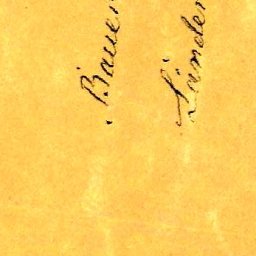 Bauer
Länder